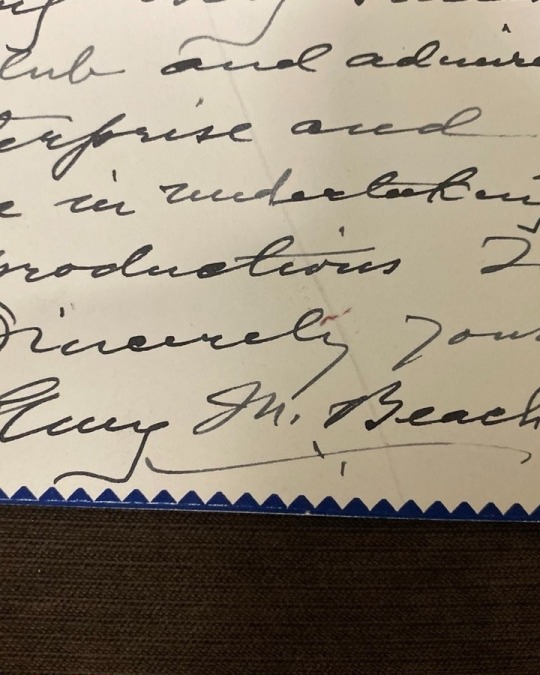 club and admire
terprise and
e in undertaking
productions I
Sincerely yours
Amy M. Beach